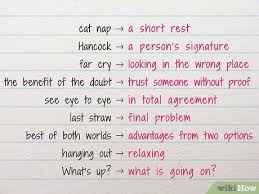 cat nap → a short rest
Hancock → a person's signature
far cry → looking in the wrong place
the benefit of the doubt → trust someone without proof
see eye to eye → in total agreement
last straw → final problem
best of both worlds → advantages from two options
hanging out → relaxing
What's up? → what is going on?
wikiHow